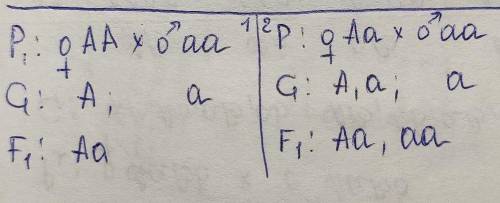 P₁: ♀AA × ♂aa
G: A; a
F₁: Aa
1 2
P: ♀Aa × ♂aa
G: A, a; a
F₁: Aa, aa